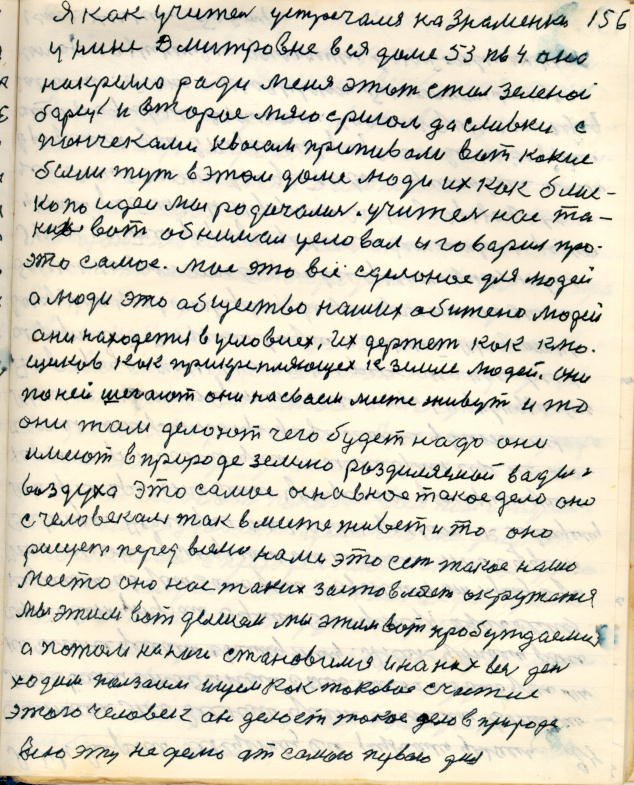 Я как учител устречалмя на Знаменке 156
у нине Дмитровне вея доме 53 пв 4 она
накрелло ради меня этот стал зеленой
барщ и второе мясо срисом да сливки с
пончеками квасам припивали вот какие
были тут в этом доме люди их как близ-
ко по идеи мы родичалися. учител нас та-
ких вот обнимал целовал и говарил про-
это самое. мое это всё сделоное для людей
а люди это абщество наших обижено людей
они находятся в условиех, их держет как кло-
щиков как прикрепляющех к земле людей. они
по ней шегают они на своем месте живут и то
они там делоют чего будет надо они
имеют в природе землю разделяемой вады и
воздуха это самое оснавное такое дело оно
с человекам так вместе живет и то оно
рисует перед всеми нами это ест такое нашо
Место оно нас таких заставляет окружатся
мы этим вот делаем мы этим вот пробуждаемся
а потом на ноги становимся и на них вес ден
ходим ползаим ищем как токовое счастие
этого человек он делоет такое дело в природе.
Всю эту неделю от самого первого дня